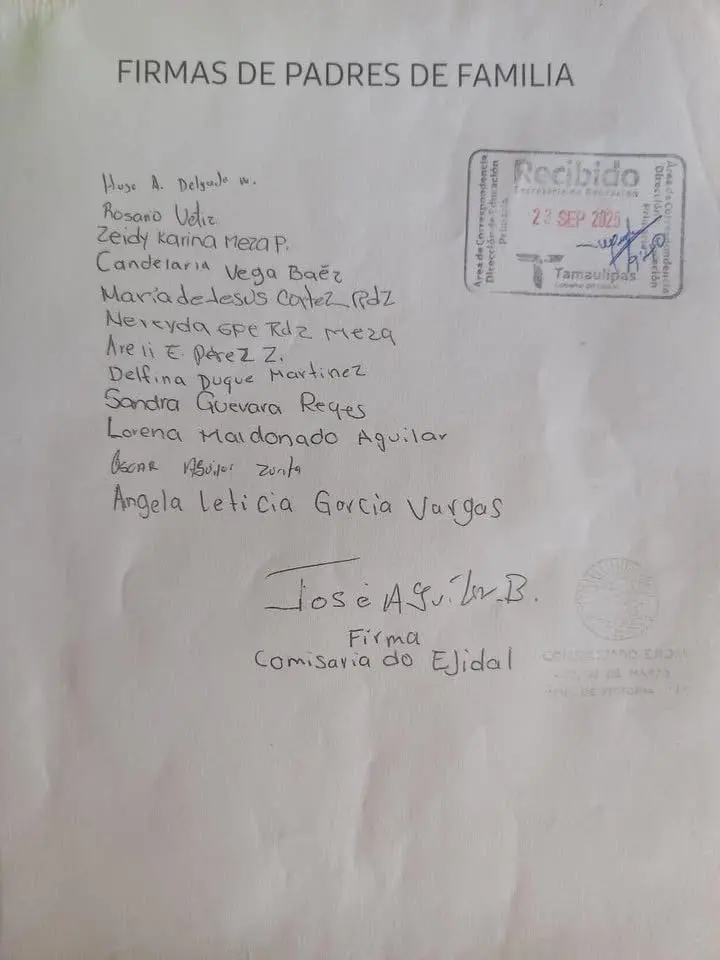 FIRMAS DE PADRES DE FAMILIA
Hugo A. Delgado M.
Rosario Veliz
Zeidy Karina Meza P.
Candelaria Vega Baéz
María de Jesus Cortez Rdz
Nereyda GPE Rdz Meza
Areli E. Pérez Z.
Delfina Duque Martinez
Sandra Guevara Reyes
Lorena Maldonado Aguilar
Oscar Aguilar
Angela Leticia García Vargas
José Aguilar B.
Firma
Comisaria do EJidal
Recibido
Secretaría de Educación
23 SEP 2025
Tamaulipas
Área de Correspondencia
Dirección de Educación
Primaria
Área de Correspondencia
Dirección de Educación
COMISARIADO EJIDAL